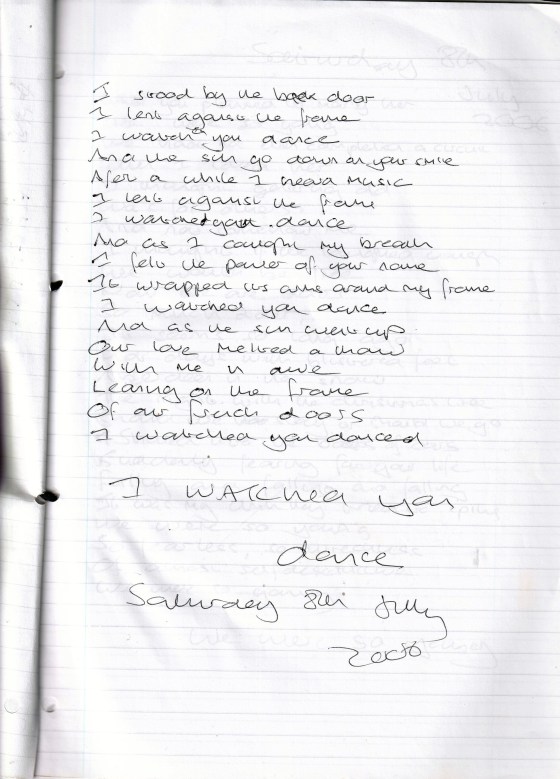 I stood by the back door
I lent against the frame
I watch you dance
And the sun go down on your smile
After a while I heard music
I lent against the frame
I watched you dance
And as I caught my breath
I felt the power of your name
It wrapped its arms around my frame
I watched you dance
And as the sun went up
Our love melted a thaw
With me in awe
Leaning on the frame
Of our french doors
I watched you danced
I WATCHED you
dance
Saturday 8th July
2006